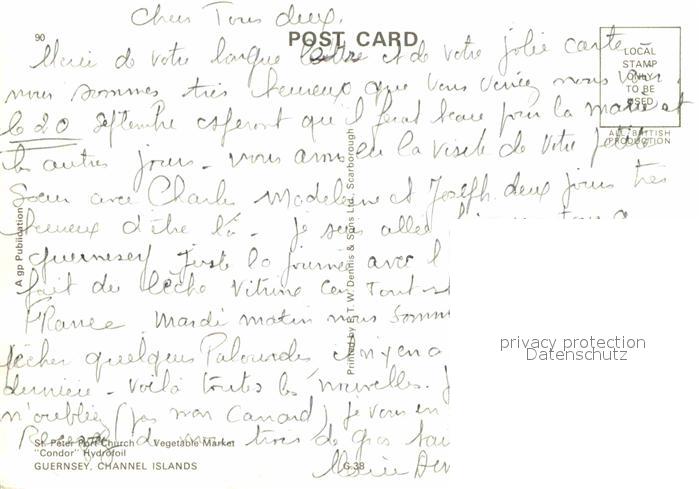 Chers Tous deux.
90
POST CARD
Merci de votre longue lettre et de votre jolie carte
LOCAL
STAMP
ONLY
TO BE
USED
ALL BRITISH
PRODUCTION
nous sommes très heureux que vous veniez nous voir
le 20 septembre espérons qu'il fera beau pour la marée et
les autres jours - nous avons eu la visite de votre petite
Soeur avec Charles Madeleine et Joseph deux jours très
heureux d'être là - Je suis allée
Guernesey juste la journée avec l
fait du lèche vitrine car tout
France Mardi matin nous somm
pêcher quelques Palourdes il n'y en a
dernière - voilà toutes les nouvelles. J
n'oubliez (pas mon Canard) je vous en
tous de gros
A gp Publication
Printed by E.T.W. Dennis & Sons Ltd., Scarborough
St. Peter Port Church Vegetable Market
"Condor" Hydrofoil
GUERNSEY, CHANNEL ISLANDS
G.38
privacy protection
Datenschutz